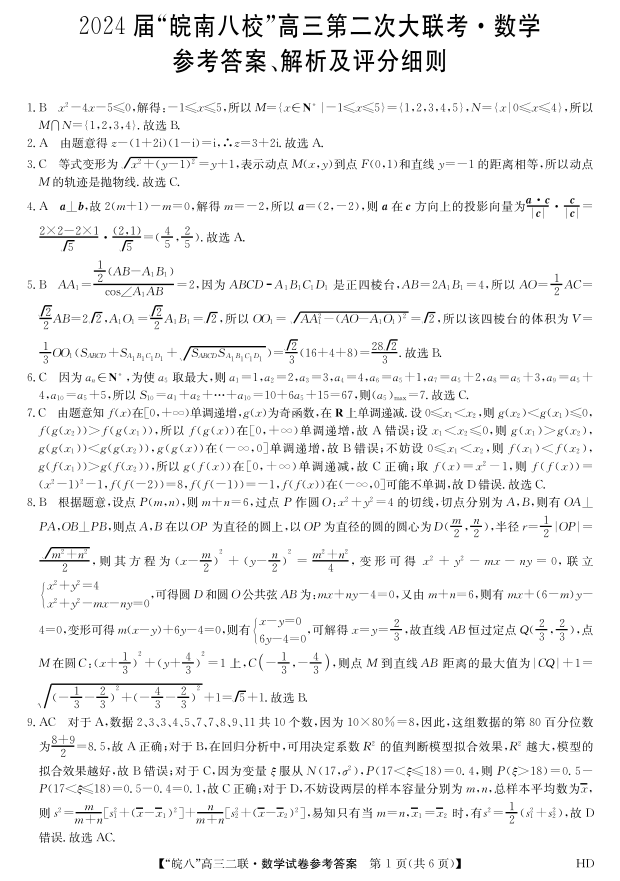 2024 届“皖南八校”高三第二次大联考·数学
参考答案、解析及评分细则
1. B x²-4x-5≤0,解得:-1≤x≤5,所以 M={x∈N* |-1≤x≤5}={1,2,3,4,5},N={x|0≤x≤4},所以
M∩N={1,2,3,4}.故选 B.
2. A 由题意得 z-(1+2i)(1-i)=i,∴z=3+2i.故选 A.
3. C 等式变形为 √(x²+(y-1)²)=y+1,表示动点 M(x,y)到点 F(0,1)和直线 y=-1 的距离相等,所以动点
M 的轨迹是抛物线.故选 C.
4. A a⊥b,故 2(m+1)-m=0,解得 m=-2,所以 a=(2,-2),则 a 在 c 方向上的投影向量为 (a·c)/|c| · c/|c| =
(2×2-2×1)/√5 · (2,1)/√5=(4/5,2/5).故选 A.
5. B AA₁=(1/2(AB-A₁B₁))/(cos∠A₁AB)=2,因为 ABCD-A₁B₁C₁D₁ 是正四棱台,AB=2A₁B₁=4,所以 AO=1/2AC=
√2/2AB=2√2,A₁O₁=√2/2A₁B₁=√2,所以 OO₁=√(AA₁²-(AO-A₁O₁)²)=√2,所以该四棱台的体积为 V=
1/3OO₁(S_ABCD+S_A₁B₁C₁D₁+√(S_ABCD S_A₁B₁C₁D₁))=√2/3(16+4+8)=28√2/3.故选 B.
6. C 因为 aₙ∈N*,为使 a₅ 取最大,则 a₁=1,a₂=2,a₃=3,a₄=4,a₆=a₅+1,a₇=a₅+2,a₈=a₅+3,a₉=a₅+
4,a₁₀=a₅+5,所以 S₁₀=a₁+a₂+⋯+a₁₀=10+6a₅+15=67,则(a₅)max=7.故选 C.
7. C 由题意知 f(x)在[0,+∞)单调递增,g(x)为奇函数,在 R 上单调递减.设 0≤x₁<x₂,则 g(x₂)<g(x₁)≤0,
f(g(x₂))>f(g(x₁)),所以 f(g(x))在[0,+∞)单调递增,故 A 错误;设 x₁<x₂≤0,则 g(x₁)>g(x₂),
g(g(x₁))<g(g(x₂)),g(g(x))在(-∞,0]单调递增,故 B 错误;不妨设 0≤x₁<x₂,则 f(x₁)<f(x₂),
g(f(x₁))>g(f(x₂)),所以 g(f(x))在[0,+∞)单调递减,故 C 正确;取 f(x)=x²-1,则 f(f(x))=
(x²-1)²-1,f(f(-2))=8,f(f(-1))=-1,f(f(x))在(-∞,0]可能不单调,故 D 错误.故选 C.
8. B 根据题意,设点 P(m,n),则 m+n=6,过点 P 作圆 O:x²+y²=4 的切线,切点分别为 A,B,则有 OA⊥
PA,OB⊥PB,则点 A,B 在以 OP 为直径的圆上,以 OP 为直径的圆的圆心为 D(m/2,n/2),半径 r=1/2|OP|=
√(m²+n²)/2,则其方程为 (x-m/2)²+(y-n/2)²=(m²+n²)/4,变形可得 x²+y²-mx-ny=0,联立
{x²+y²=4
x²+y²-mx-ny=0,可得圆 D 和圆 O 公共弦 AB 为:mx+ny-4=0,又由 m+n=6,则有 mx+(6-m)y-
4=0,变形可得 m(x-y)+6y-4=0,则有{x-y=0
6y-4=0,可解得 x=y=2/3,故直线 AB 恒过定点 Q(2/3,2/3),点
M 在圆 C:(x+1/3)²+(y+4/3)²=1 上,C(-1/3,-4/3),则点 M 到直线 AB 距离的最大值为|CQ|+1=
√((-1/3-2/3)²+(-4/3-2/3)²)+1=√5+1.故选 B.
9. AC 对于 A,数据 2、3、3、4、5、7、7、8、9、11 共 10 个数,因为 10×80%=8,因此,这组数据的第 80 百分位数
为(8+9)/2=8.5,故 A 正确;对于 B,在回归分析中,可用决定系数 R² 的值判断模型拟合效果,R² 越大,模型的
拟合效果越好,故 B 错误;对于 C,因为变量 ξ 服从 N(17,σ²),P(17<ξ≤18)=0.4,则 P(ξ>18)=0.5-
P(17<ξ≤18)=0.5-0.4=0.1,故 C 正确;对于 D,不妨设两层的样本容量分别为 m,n,总样本平均数为x̄,
则 s²=m/(m+n)[s₁²+(x̄-x̄₁)²]+n/(m+n)[s₂²+(x̄-x̄₂)²],易知只有当 m=n,x̄₁=x̄₂ 时,有s²=1/2(s₁²+s₂²),故 D
错误.故选 AC.
【“皖八”高三二联·数学试卷参考答案 第 1 页(共 6 页)】 HD